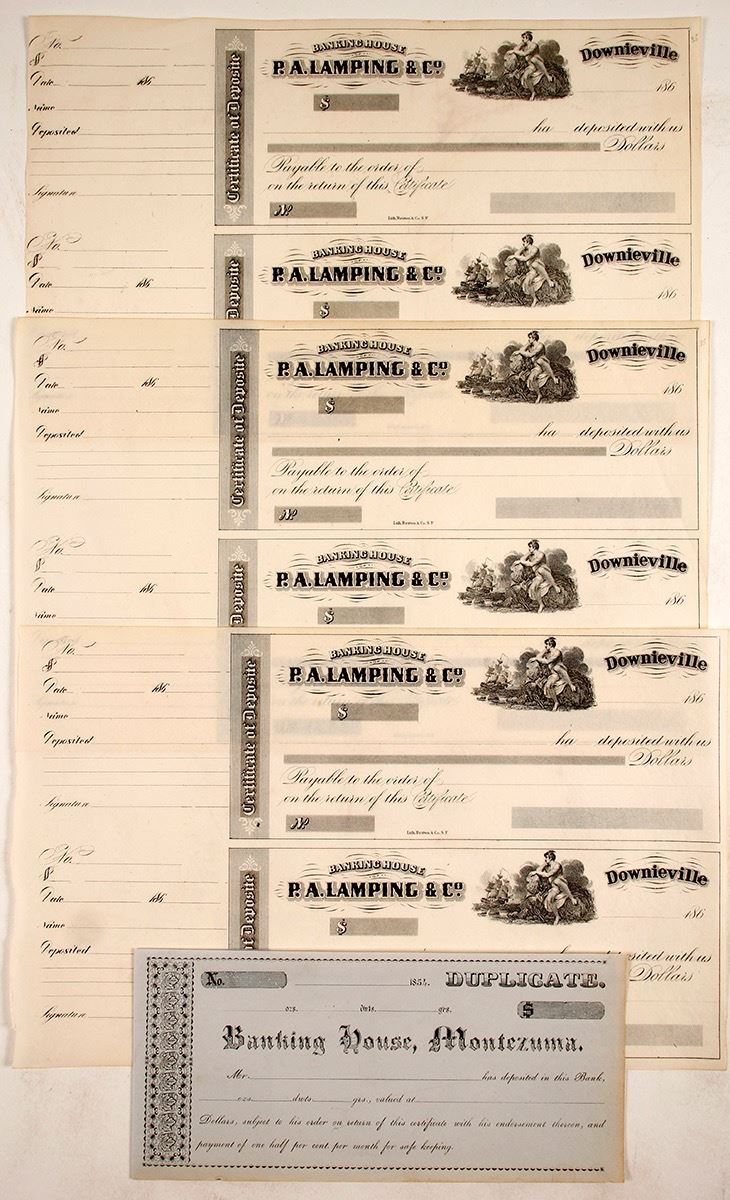 No.
$
Date 186
Name
Deposited
Signature
Certificate of Deposite
BANKING HOUSE
OF
P. A. LAMPING & Co
$
Downieville
186
ha deposited with us
Dollars
Payable to the order of
on the return of this Certificate
No
Lith. Britton & Co. S. F.
No.
$
Date 186
Name
Deposite
BANKING HOUSE
OF
P. A. LAMPING & Co
$
Downieville
186
No.
$
Date 186
Name
Deposited
Signature
Certificate of Deposite
BANKING HOUSE
OF
P. A. LAMPING & Co
$
Downieville
186
ha deposited with us
Dollars
Payable to the order of
on the return of this Certificate
No
Lith. Britton & Co. S. F.
No.
$
Date 186
Name
Deposite
BANKING HOUSE
OF
P. A. LAMPING & Co
$
Downieville
186
No.
$
Date 186
Name
Deposited
Signature
Certificate of Deposite
BANKING HOUSE
OF
P. A. LAMPING & Co
$
Downieville
186
ha deposited with us
Dollars
Payable to the order of
on the return of this Certificate
No
Lith. Britton & Co. S. F.
No.
$
Date 186
Name
Deposited
Signature
of Deposite
BANKING HOUSE
OF
P. A. LAMPING & Co
$
Downieville
186
ha deposited with us
Dollars
No. 185 DUPLICATE.
ozs. dwts. grs. $
Banking House, Montezuma.
Mr. has deposited in this Bank,
ozs. dwts. grs., valued at
Dollars, subject to his order on return of this certificate with his endorsement thereon, and
payment of one half per cent. per month for safe keeping.